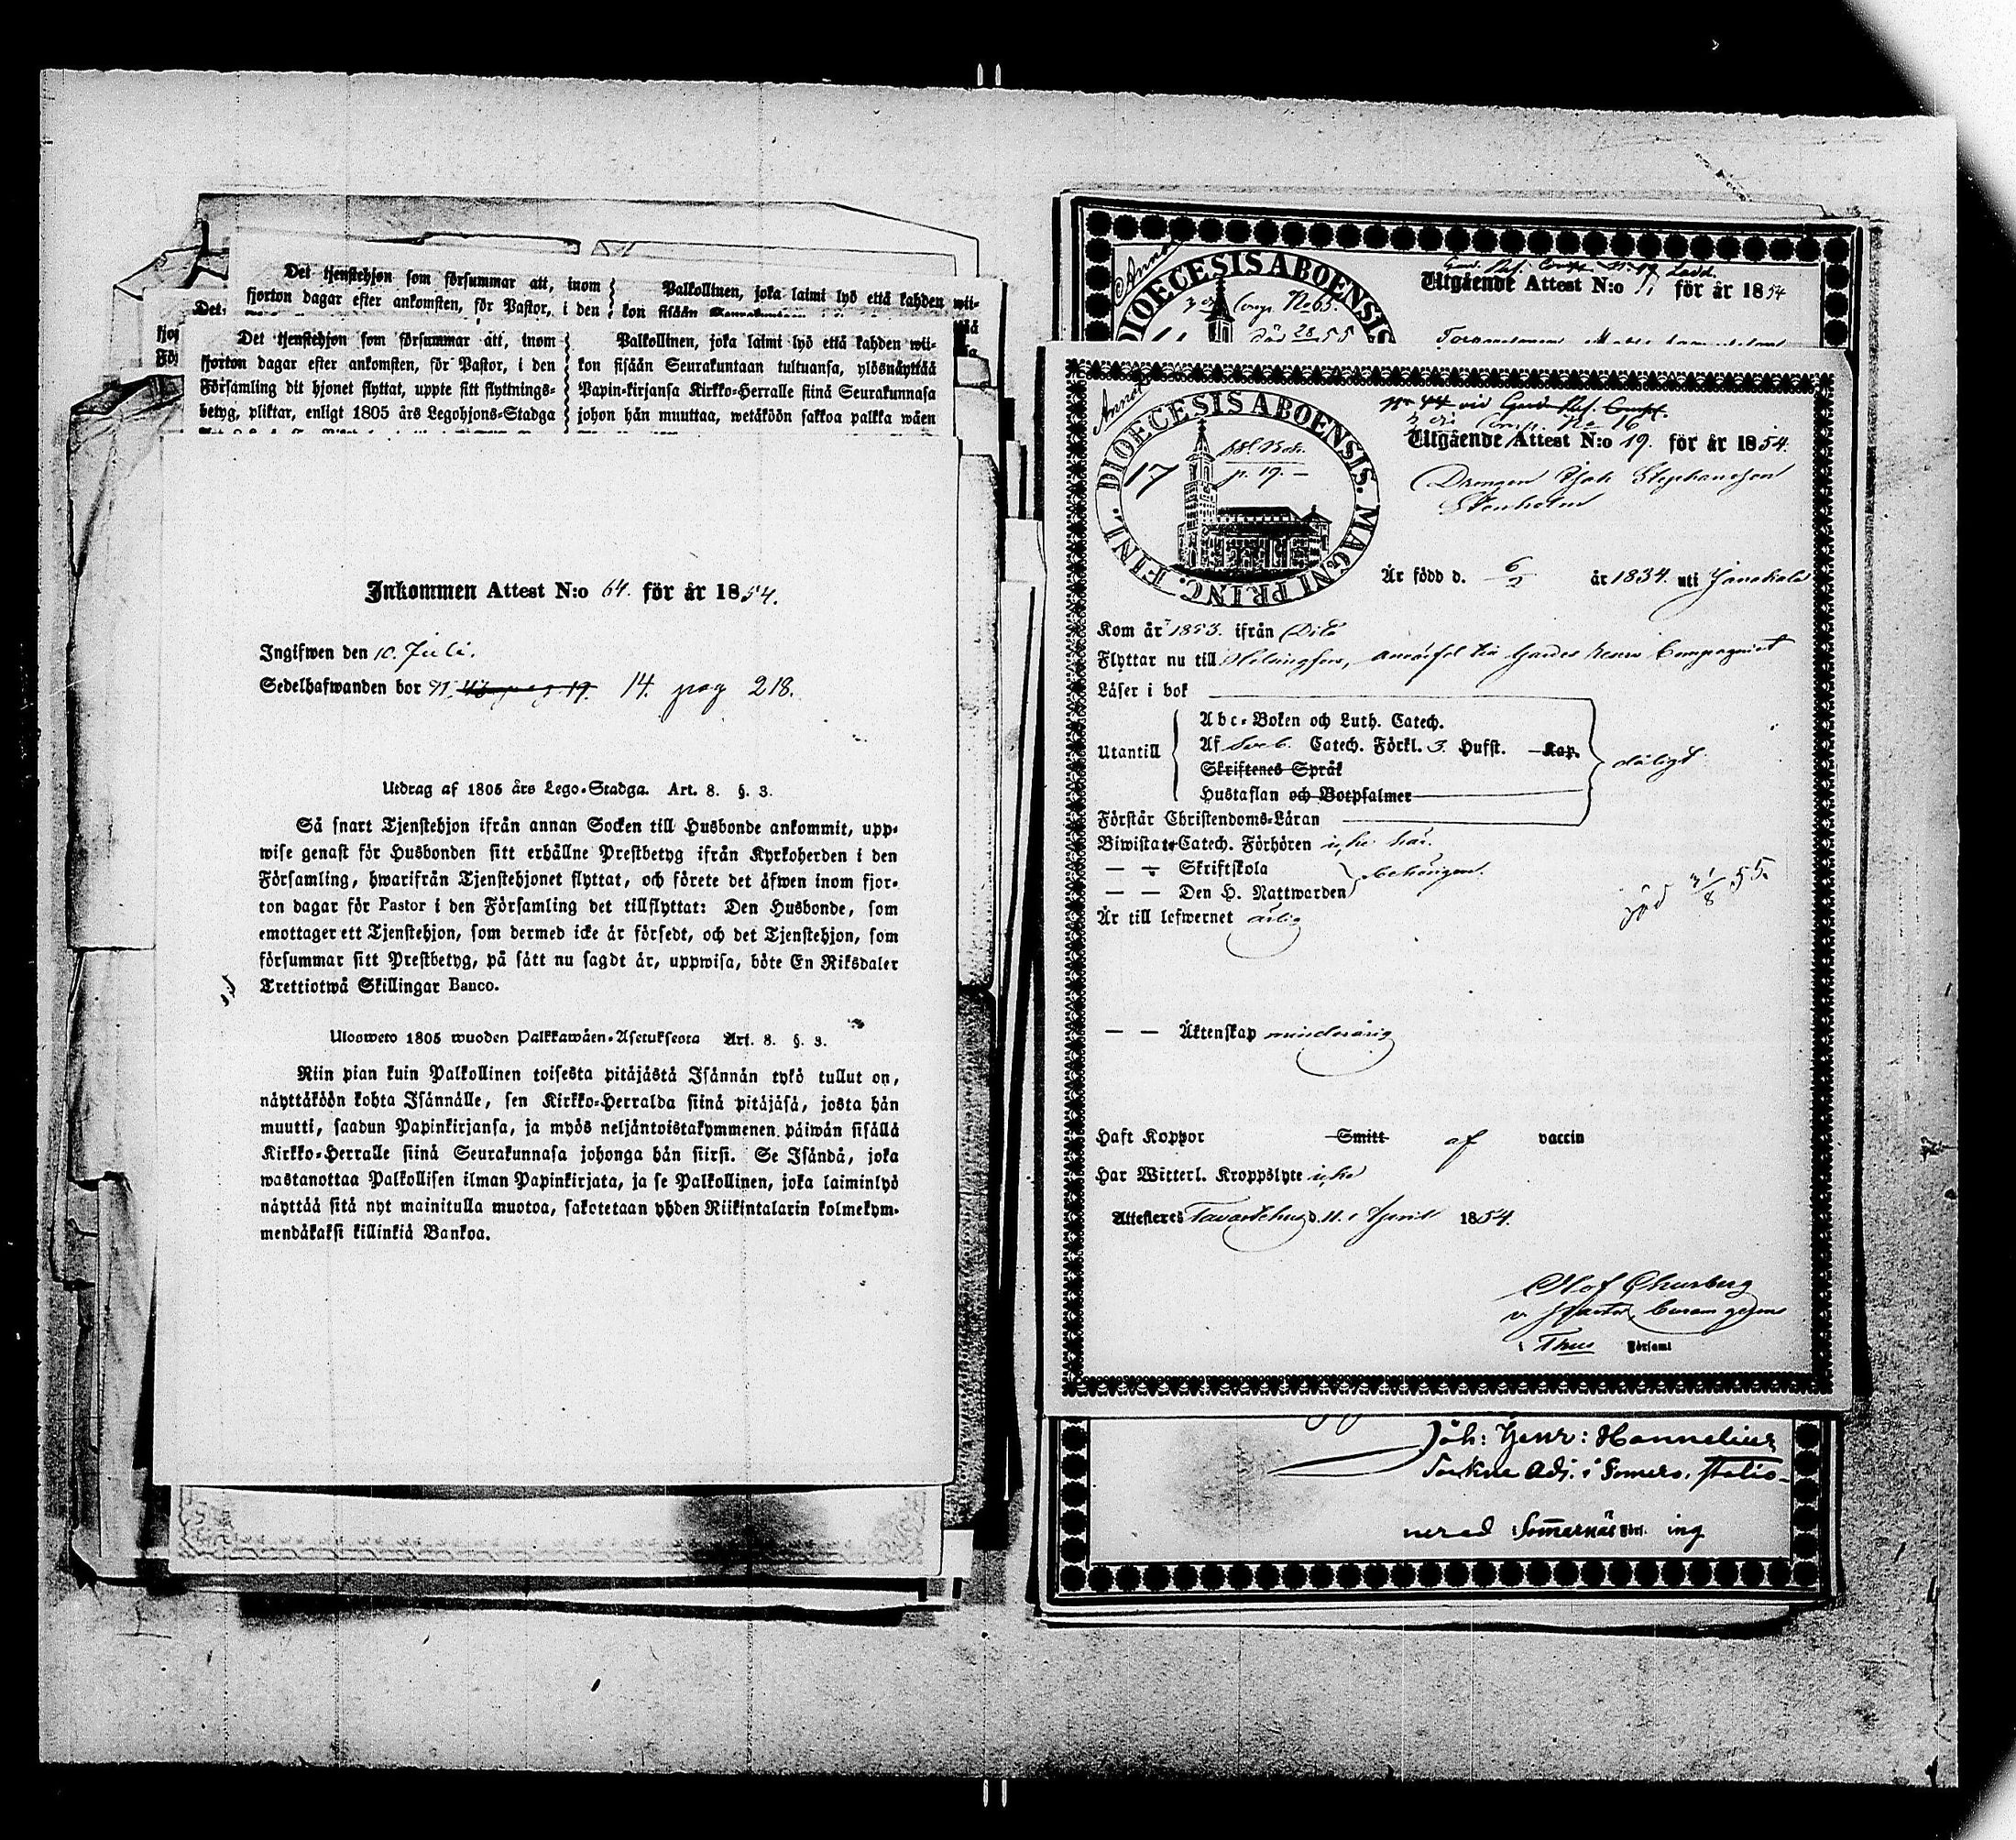 Det tjenstehjon som försummar att, inom
fjorton dagar efter ankomsten, för Pastor, i den
Palkollinen, joka laimi lyö että kahden wii-
Det tjenstehjon som försummar att, inom
fjorton dagar efter ankomsten, för Pastor, i den
Församling dit hjonet flyttat, uppte sitt flyttnings-
betyg, pliktar, enligt 1805 års Legohjons-Stadga
Palkollinen, joka laimi lyö että kahden wii-
kon sisään Seurakuntaan tultuansa, ylösnäyttää
Papin-kirjansa Kirkko-Herralle siinä Seurakunnasa
johon hän muuttaa, wetäköön sakkoa palkka wäen
Inkommen Attest N:o 64. för år 1854.
Ingifwen den 10. Juli.
Sedelhafwanden bor 14. pag 218.
Utdrag af 1805 års Lego-Stadga. Art. 8. §. 3.
Så snart Tjenstehjon ifrån annan Socken till Husbonde ankommit, upp-
wise genast för Husbonden sitt erhållne Prestbetyg ifrån Kyrkoherden i den
Församling, hwarifrån Tjenstehjonet flyttat, och förete det äfwen inom fjor-
ton dagar för Pastor i den Församling det tillflyttat: Den Husbonde, som
emottager ett Tjenstehjon, som dermed icke är försedt, och det Tjenstehjon, som
försummar sitt Prestbetyg, på sätt nu sagdt är, uppwisa, böte En Riksdaler
Trettiotwå Skillingar Banco.
Ulosweto 1805 wuoden Palkkawäen-Asetuksesta Art. 8. §. 3.
Niin pian kuin Palkollinen toisesta pitäjästä Isännän tykö tullut on,
näyttäköön kohta Isännälle, sen Kirkko-Herralda siinä pitäjäsä, josta hän
muutti, saadun Papinkirjansa, ja myös neljäntoistakymmenen päiwän sisällä
Kirkko-Herralle siinä Seurakunnasa johonga hän siirsi. Se Isändä, joka
wastanottaa Palkollisen ilman Papinkirjata, ja se Palkollinen, joka laiminlyö
näyttää sitä nyt mainitulla muotoa, sakotetaan yhden Riikintalarin kolmekym-
mendäkaksi killinkiä Bankoa.
DIOECESIS ABOENSIS
Utgående Attest N:o för år 1854
DIOECESIS ABOENSIS. MAGNI PRINC. FINL.
17
p. 19.
Utgående Attest N:o 19. för år 1854.
Drengen Isak Stephansson
Stenholm
Är född d. 6/2 år 1834. uti Janakala
Kom år 1853. ifrån Dito
Flyttar nu till Helsingfors,
Läser i bok
Utantill
Abc-Boken och Luth. Catech.
Af Catech. Förkl. 3. Hufst. Kap.
Skriftenes Språk
Hustaflan och Botpsalmer
dåligt
Förstår Christendoms-Läran
Biwistat Catech. Förhören icke här.
— — Skriftskola
— — Den H. Nattwarden
behörigen.
Är till lefwernet ärlig
död 31/8 55.
— — Äktenskap minderårig
Haft Koppor Smitt af vaccin
Har Witterl. Kroppslyte icke
Attesteres Tavastehus d. 11. April 1854.
Olof Churberg
v. Pastor
i Thus Förfaml
Joh: Henr: Hannelius
Sockne Adj. i Somero, statio-
nerad i Somernäs ing